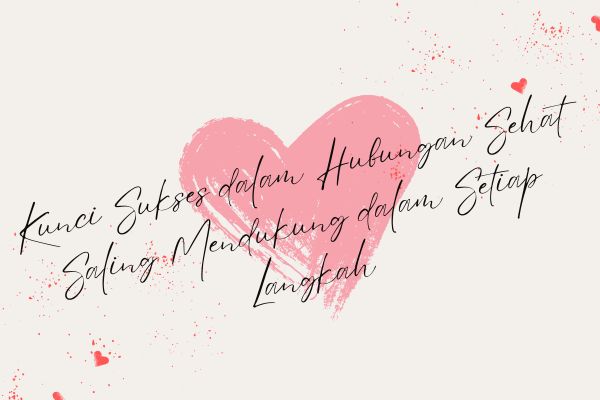 Kunci Sukses dalam Hubungan Sehat
Saling Mendukung dalam Setiap
Langkah